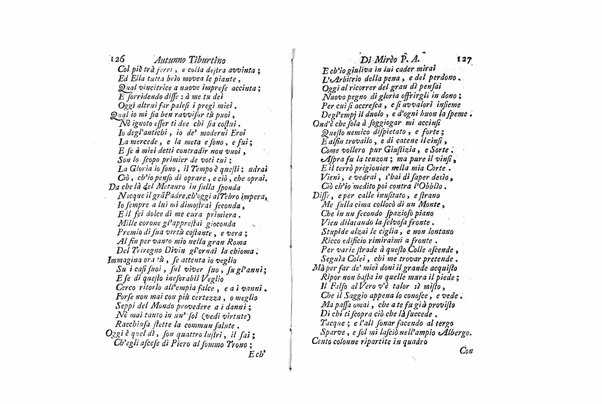 126 Autunno Tiburtino
Col piè trà ferri, e colla destra avvinta;
Ed Ella tutta brio movea le piante,
Qual vincitrice a nuove imprese accinta;
E sorridendo disse: a me tu dei
Oggi altrui far palesi i pregi miei.
Qual io mi sia ben ravvisar tù puoi,
Nè ignoto esser ti dee chi sia costei.
Io degl'antichi, io de' moderni Eroi
La mercede, e la meta e sono, e fui;
E se à miei detti contradir non vuoi,
Son lo scopo primier de voti tui:
La Gloria io sono, il Tempo è questi: udrai
Ciò, ch'io penso di oprare, e ciò, che oprai.
Da che là del Metauro in sulla sponda
Nacque il grā Padre, ch'oggi al Tebro impera,
Io sempre a lui mi dimostrai seconda,
E il fei dolce di me cura primiera.
Mille corone gl'apprestai gioconda
Premio di sua virtù costante, e vera;
Al fin per vanto mio nella gran Roma
Del Triregno Divin gl'ornai la chioma.
Immagina ora tù, se attento io veglio
Su i casi suoi, sul viver suo, su gl'anni;
E se di questo inesorabil Veglio
Cerco ritorlo all'empia falce, e a i vanni.
Forse non mai con più certezza, o meglio
Seppi del Mondo provedere a i danni;
Nè mai tanto in un' sol (vedi virtute)
Racchiusa stette la commun salute.
Oggi è quel dì, son quattro lustri, il sai;
Ch'egli ascese di Piero al sommo Trono;
E ch'
Di Mirèo P. A. 127
E ch'io giuliva in lui cader mirai
L'Arbitrio della pena, e del perdono.
Oggi al ricorrer del gran dì pensai
Nuovo pegno di gloria offrirgli in dono;
Per cui si accresca, e si avvalori insieme
Degl'empj il duolo, e d'ogni buon la speme.
Ond'è che sola à soggiogar mi accinsi
Questo nemico dispietato, e forte;
E alfin trovallo, e di catene il cinsi,
Come vollero pur Giustizia, e Sorte.
Aspra fu la tenzon; ma pure il vinsi,
E il terrò prigionier nella mia Corte.
Vieni, e vedrai, s'hai di saper desio,
Ciò ch'io medito poi contra l'Obblìo.
Disse, e per calle inusitato, e strano
Me sulla cima collocò di un Monte,
Che in un secondo spazioso piano
Vien dilacando la selvosa fronte.
Stupide alzai le ciglia, e non lontano
Ricco edificio rimiraimi a fronte.
Per varie strade à questo Colle ascende,
Seguia Colei, chi me trovar pretende.
Mà per far de' miei doni il grande acquisto
Ripor non basta in quelle mura il piede;
Il Falso al Vero v'è talor sì misto,
Che il Saggio appena lo conosce, e vede.
Ma passa omai, che a te fu già provisto
Di chi ti scopra ciò che là succede.
Tacque; e l'ali sonar facendo al tergo
Sparve, e sol mi lasciò nell'ampio Albergo.
Cento colonne ripartite in quadro
Con